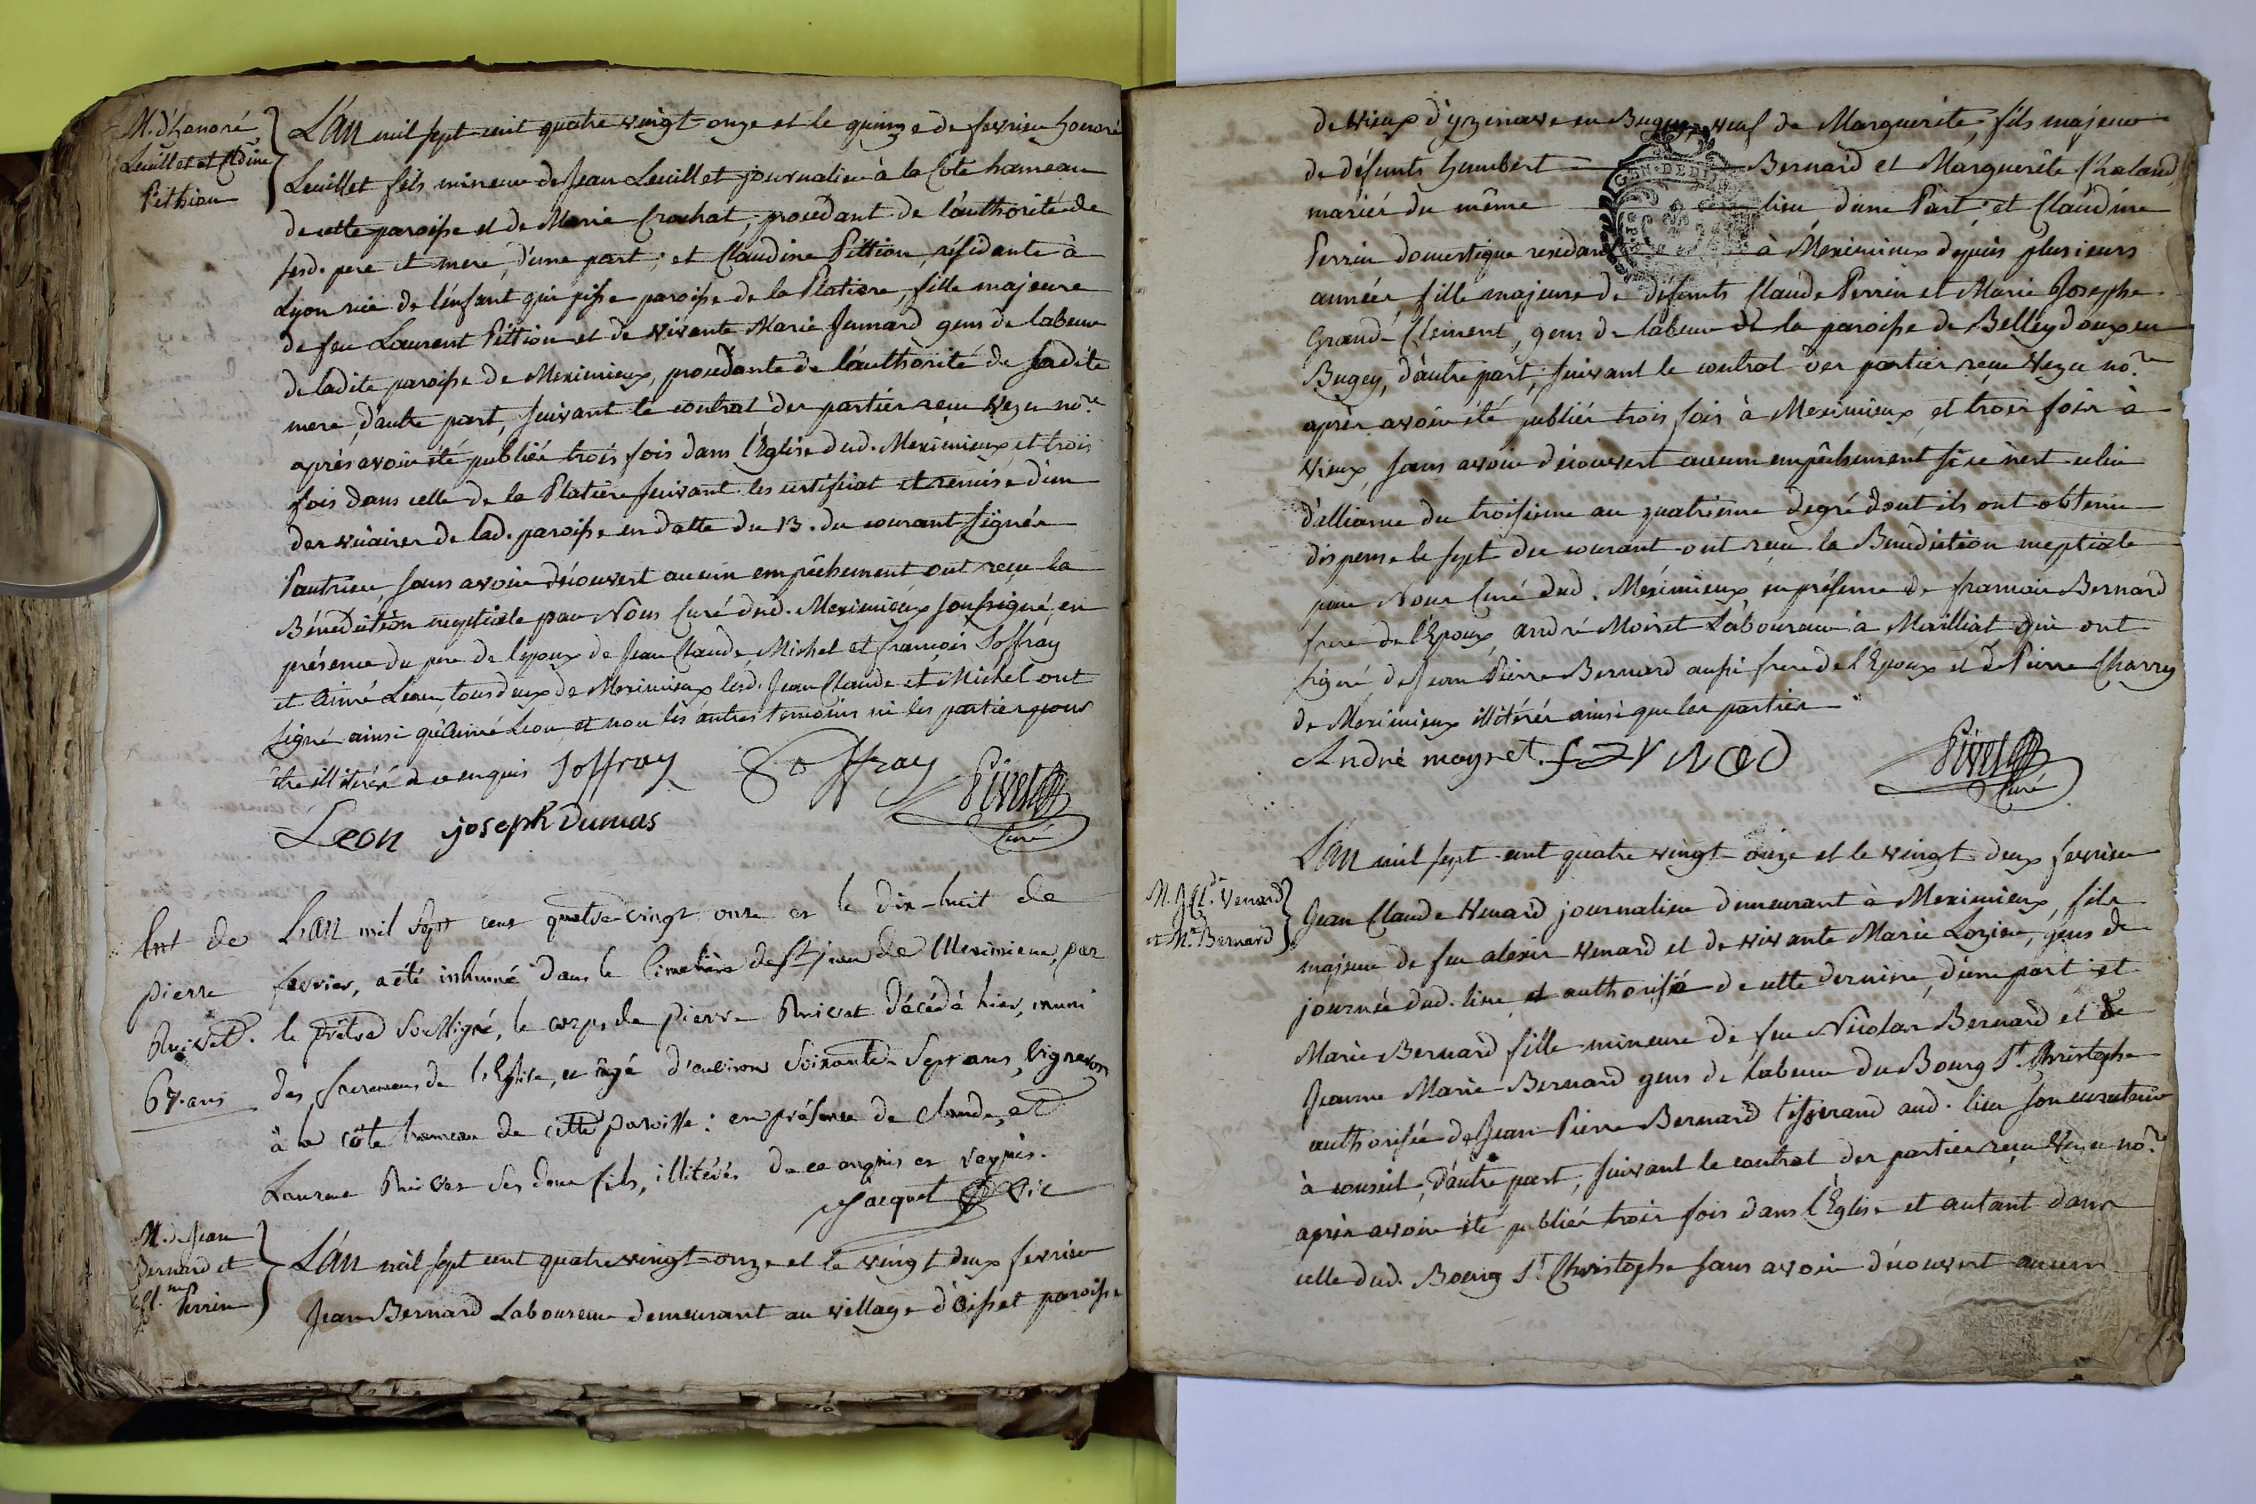 M. d'honoré
Leuillet et Cl.dine
Pithion
L'an mil sept cent quatre vingt onze et le quinze de fevrier honoré
Leuillet fils mineur de Jean Leuillet journalier à la Côte hameau
de cette paroisse et de Marie Crochat, procédant de l'authorité de
sesd. pere et mere, d'une part; et Claudine Pittion, résidante à
Lyon rue de l'enfant qui pisse paroisse de la Platiere, fille majeure
de feu Laurent Pittion et de vivante Marie Jumard gens de labeur
de ladite paroisse de Meximieux, procédante de l'authorité de sadite
mere, d'autre part, suivant le contrat des parties reçu Vezu no.re
après avoir été publiés trois fois dans l'Eglise dud. Meximieux et trois
fois dans celle de la Platiere suivant les certificat et remise d'un
des vicaires de lad. paroisse en datte du 13. du courant signée
Pautrier, sans avoir découvert aucun empêchement ont reçu la
Bénédiction nuptiale par Nous Curé dud. Meximieux soussigné, en
présence du pere de l'époux de Jean Claude Michel et françois Soffray
et Aimé Leon, tous deux de Meximieux lesd. Jean Claude et Michel ont
signé ainsi qu'Aimé Leon et non les autres temoins ni les parties pour
être illitérés de ce enquis Joffray Soffray Pivet
Curé
Leon joseph Dumas
Ent de
pierre
Privet.
67. ans
L'an mil sept cens quatre-vingt onze et le dix-huit de
fevrier, a été inhumé dans le Cimetiere de St jean de Meximieux, par
le prêtre soussigné, le corps de pierre Privet décédé hier, muni
des sacremens de l'Eglise, et âgé d'environ soixante sept ans, vigneron
à la côte hameau de cette paroisse: en présence de claude, et
Laurent Privet ses deux fils, illitérés de ce enquis et requis.
Jacquet Vic
M. de Jean
Bernard et
Cl.ne Perrin
L'an mil sept cent quatre vingt onze et le vingt deux fevrier
Jean Bernard Laboureur demeurant au village d'Oisset paroisse
de Vieux d'yzenave en Bugey, veuf de Marguerite, fils majeur
de défunts humbert Bernard et Marguerite Chaland,
mariés du même lieu, d'une Part; et Claudine
Perrin domestique residante à Meximieux depuis plusieurs
années, fille majeure de défunts Claude Perrin et Marie Josephe
Grand-Clement, gens de labeur de la paroisse de Belleydoux en
Bugey, d'autre part; suivant le contrat des parties reçu Vezu no.re
après avoir été publiés trois fois à Meximieux, et trois fois à
Vieux, sans avoir découvert aucun empêchement si ce n'est celui
d'alliance du troisieme au quatrieme degré dont ils ont obtenu
dispense le sept du courant ont reçu la Benediction nuptiale
par Nous Curé dud. Meximieux en présence de françois Bernard
frere de l'Epoux, andré Moiret Laboureur à Meilliat, qui ont
signé, de Jean Pierre Bernard aussi frere de l'Epoux et de Pierre Charvey
de Meximieux illitérés ainsi que les parties
André mayret Pivet
Curé
M. J. Cl.de Venard
et M.e Bernard
L'an mil sept cent quatre vingt onze et le vingt deux fevrier
Jean Claude Venard journalier demeurant à Meximieux, fils
majeur de feu alexis Venard et de vivante Marie Lozier, gens de
journée dud. lieu et authorisé de cette derniere, d'une part et
Marie Bernard fille mineure de feu Nicolas Bernard et de
Jeanne Marie Bernard gens de labeur du Bourg St. Christophe
authorisée de Jean Pierre Bernard tisserand aud. lieu son curateur
à conseil, d'autre part, suivant le contrat des parties reçu Vezu no.re
après avoir été publiés trois fois dans l'Eglise et autant dans
celle dud. Bourg St. Christophe sans avoir découvert aucun